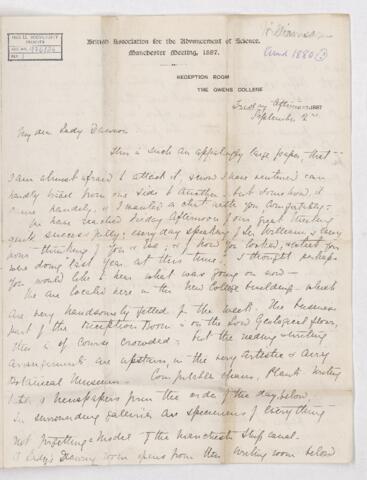 British Association for the Advancement of Science.
Manchester Meeting, 1887.
RECEPTION ROOM
THE OWENS COLLEGE
Friday Afternoon 1887
September 2nd
My dear Lady Dawson
This is such an appallingly large paper, that
I am almost afraid to attack it, seven
hardly travel from one side to another. but somehow, it
came handily, & I wanted a chat with you comfortably.
We have reached Friday Afternoon of our great
quite successfully: every day speaking of Sir William & every
hour thinking of you & & of how you looked, & what you
were doing "last year at this time." I thought perhaps
you would like to hear what was going on now—
We are located here in the New College buildings which
are very handsomely fitted for the week. The business
part of the Reception Room is on the low Geological floor,
this is of course crowded; but the reading & writing
arrangements are upstairs in the very Artistic & Airy
Botanical Museum. Comfortable chairs, Plants writing
tables & newspapers form the order of the day below.
In surrounding galleries are specimens of everything
not forgetting a Model of the Manchester Ship canal.
A Lady's Drawing room opens from this Writing room below